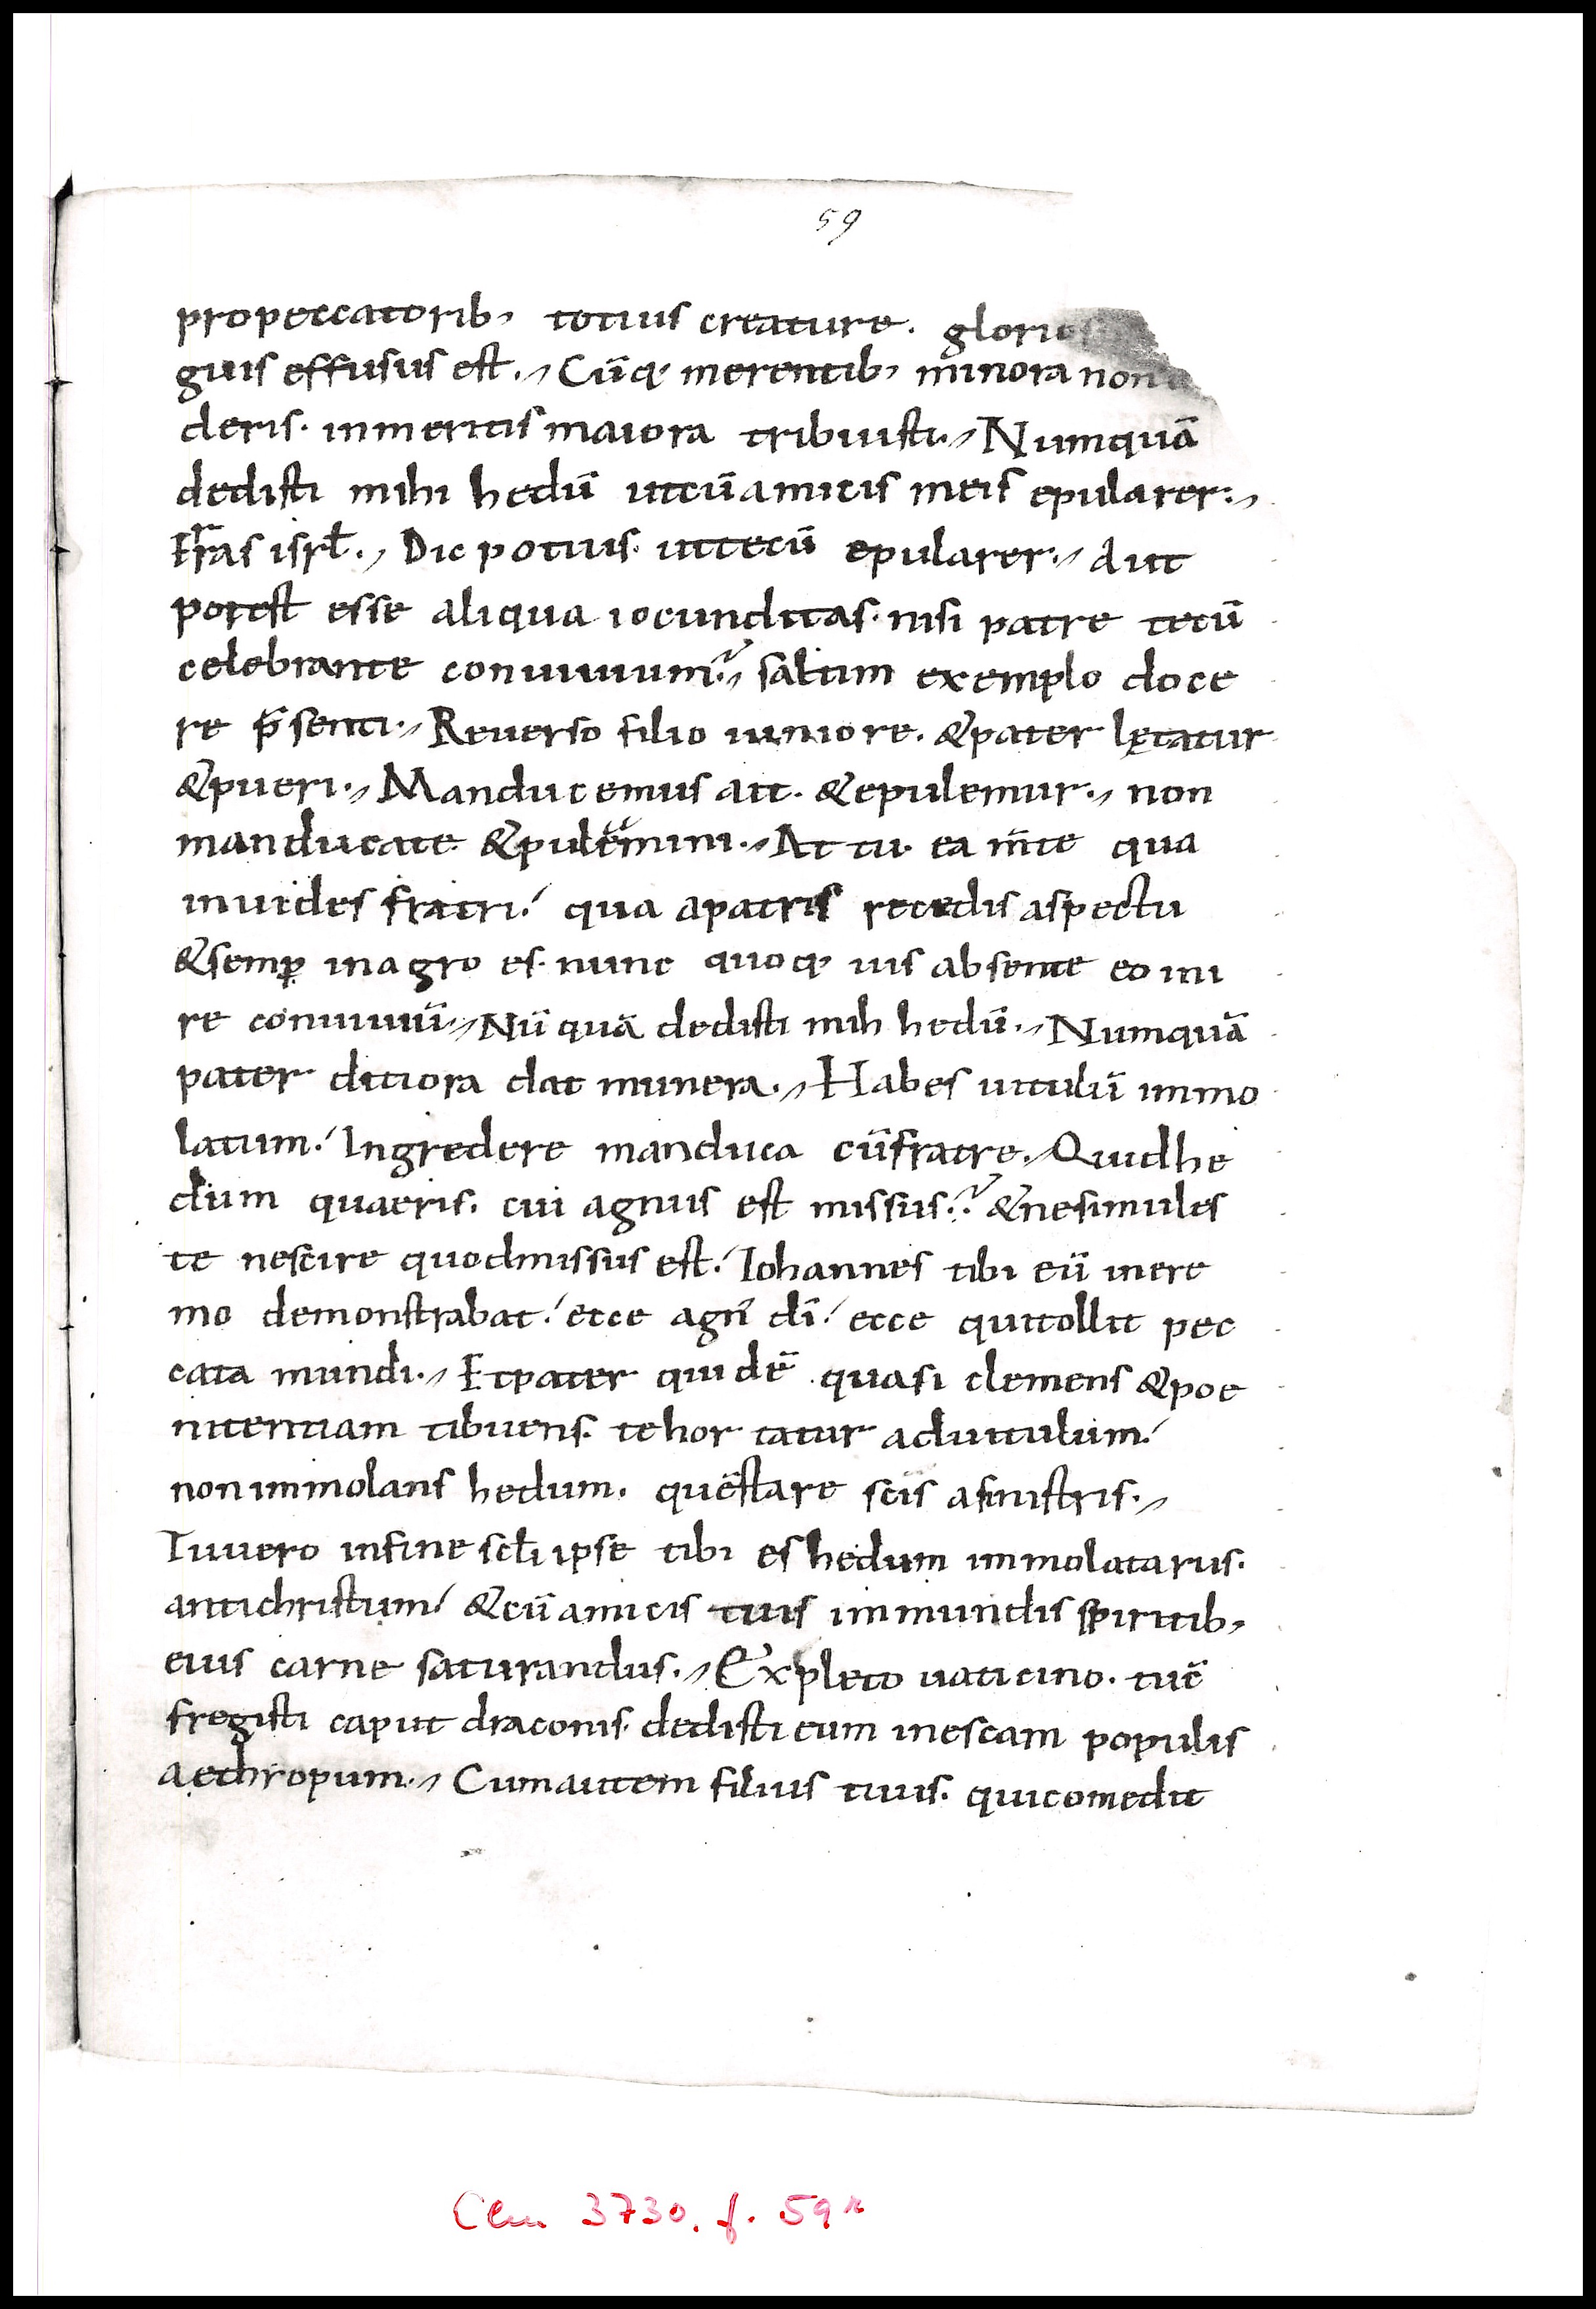 59
propeccatorib, totius creature. glorios
guis effusus est. Cūq; merentib, minora non
deris. inmeritis maiora tribuisti. Numquā
dedisti mihi hedū utcūamicis meis epularer.
Erras isrł. Dic potius. uttecū epularer. Aut
potest esse aliqua iocunditas. nisi patre tecū
celebrante conuiuium? saltim exemplo doce
re p̄senti. Reuerso filio iuniore. &pater lętatur
&pueri. Manducemus ait. &epulemur. non
manducate &pulemini. At tu. ea m̄te qua
inuides fratri. qua apatris recedis aspectu
&semp̱ inagro es. nunc quoq; uis absente eo ini
re conuiuiū. Nūquā dedisti mih hedū. Numquā
pater ditiora dat munera. Habes uitulū immo
latum. Ingredere manduca cūfratre. Quidhe
dum quaeris. cui agnus est missus? &nesimules
te nescire quodmissus est. Iohannes tibi eū inere
mo demonstrabat. ecce agn̄ dī. ecce quitollit pec
cata mundi. Etpater quidē quasi clemens &poe
nitentiam tibuens. tehortatur aduitulum.
nonimmolans hedum. quēstare scis asinistris.
Tuuero infine scłi ipse tibi es hedum immolatarus.
antichristum. &cūamicis tuis immundis spiritib,
eius carne saturandus. Expleto uaticino. tuē
fregisti caput draconis. dedisti eum inescam populis
aethropum. Cumautem filius tuus. quicomedit
Clm 3730. f. 59r